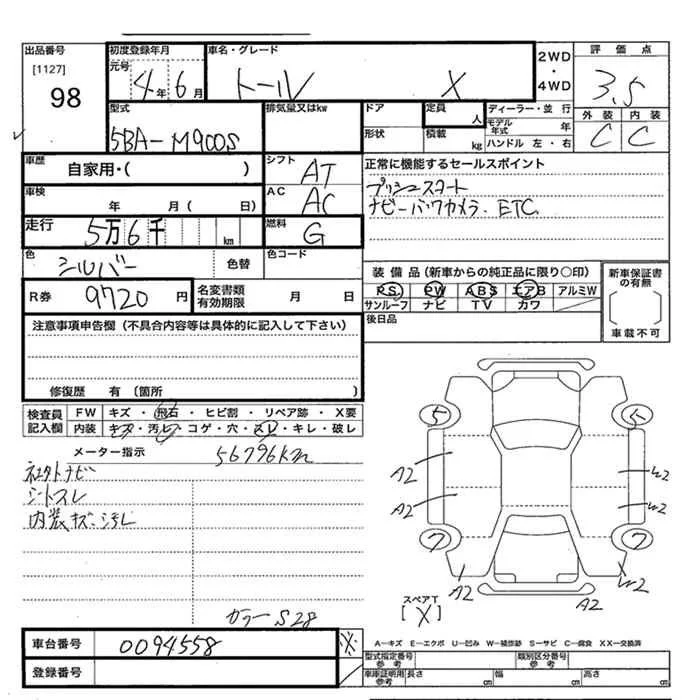 出品番号 初度登録年月 車名・グレード 2WD・4WD 評価点
[1127] 元号 4年 6月 トール X 3.5
98
型式 排気量又はkw ドア 定員 人 ディーラー・並行 外装 内装
5BA-M900S 形状 積載 kg モデル年式 年 C C
ハンドル 左・右
車歴 自家用・( ) シフト AT 正常に機能するセールスポイント
車検 年 月( 日) AC AC プッシュスタート
ナビ・バックカメラ. ETC
走行 5万6千 km 燃料 G
色 シルバー 色替 色コード
装備品(新車からの純正品に限り〇印) 新車保証書の有無
R券 9720円 名変書類有効期限 月 日 P.S. PW ABS エアB アルミW
サンルーフ ナビ TV カワ [ ]
注意事項申告欄(不具合内容等は具体的に記入して下さい) 後日品 車載不可
修復歴 有(箇所 )
検査員記入欄 FW キズ・飛石・ヒビ割・リペア跡・X要
内装 キズ・汚レ・コゲ・穴・スレ・キレ・破レ
メーター指示 56796km
社外ナビ
シートスレ
内装キズ・汚レ
5 5
A2 W2
A2 W2
7 7
A2 W2
A2
スペアT
[X]
カラーS28
車台番号 0094558 ※
登録番号
A-キズ E-エクボ U-凹み W-補修跡 S-サビ C-腐食 XX-交換済
型式指定番号参考 類別区分番号参考
車庫証明用参考 長さ cm 幅 cm 高さ cm